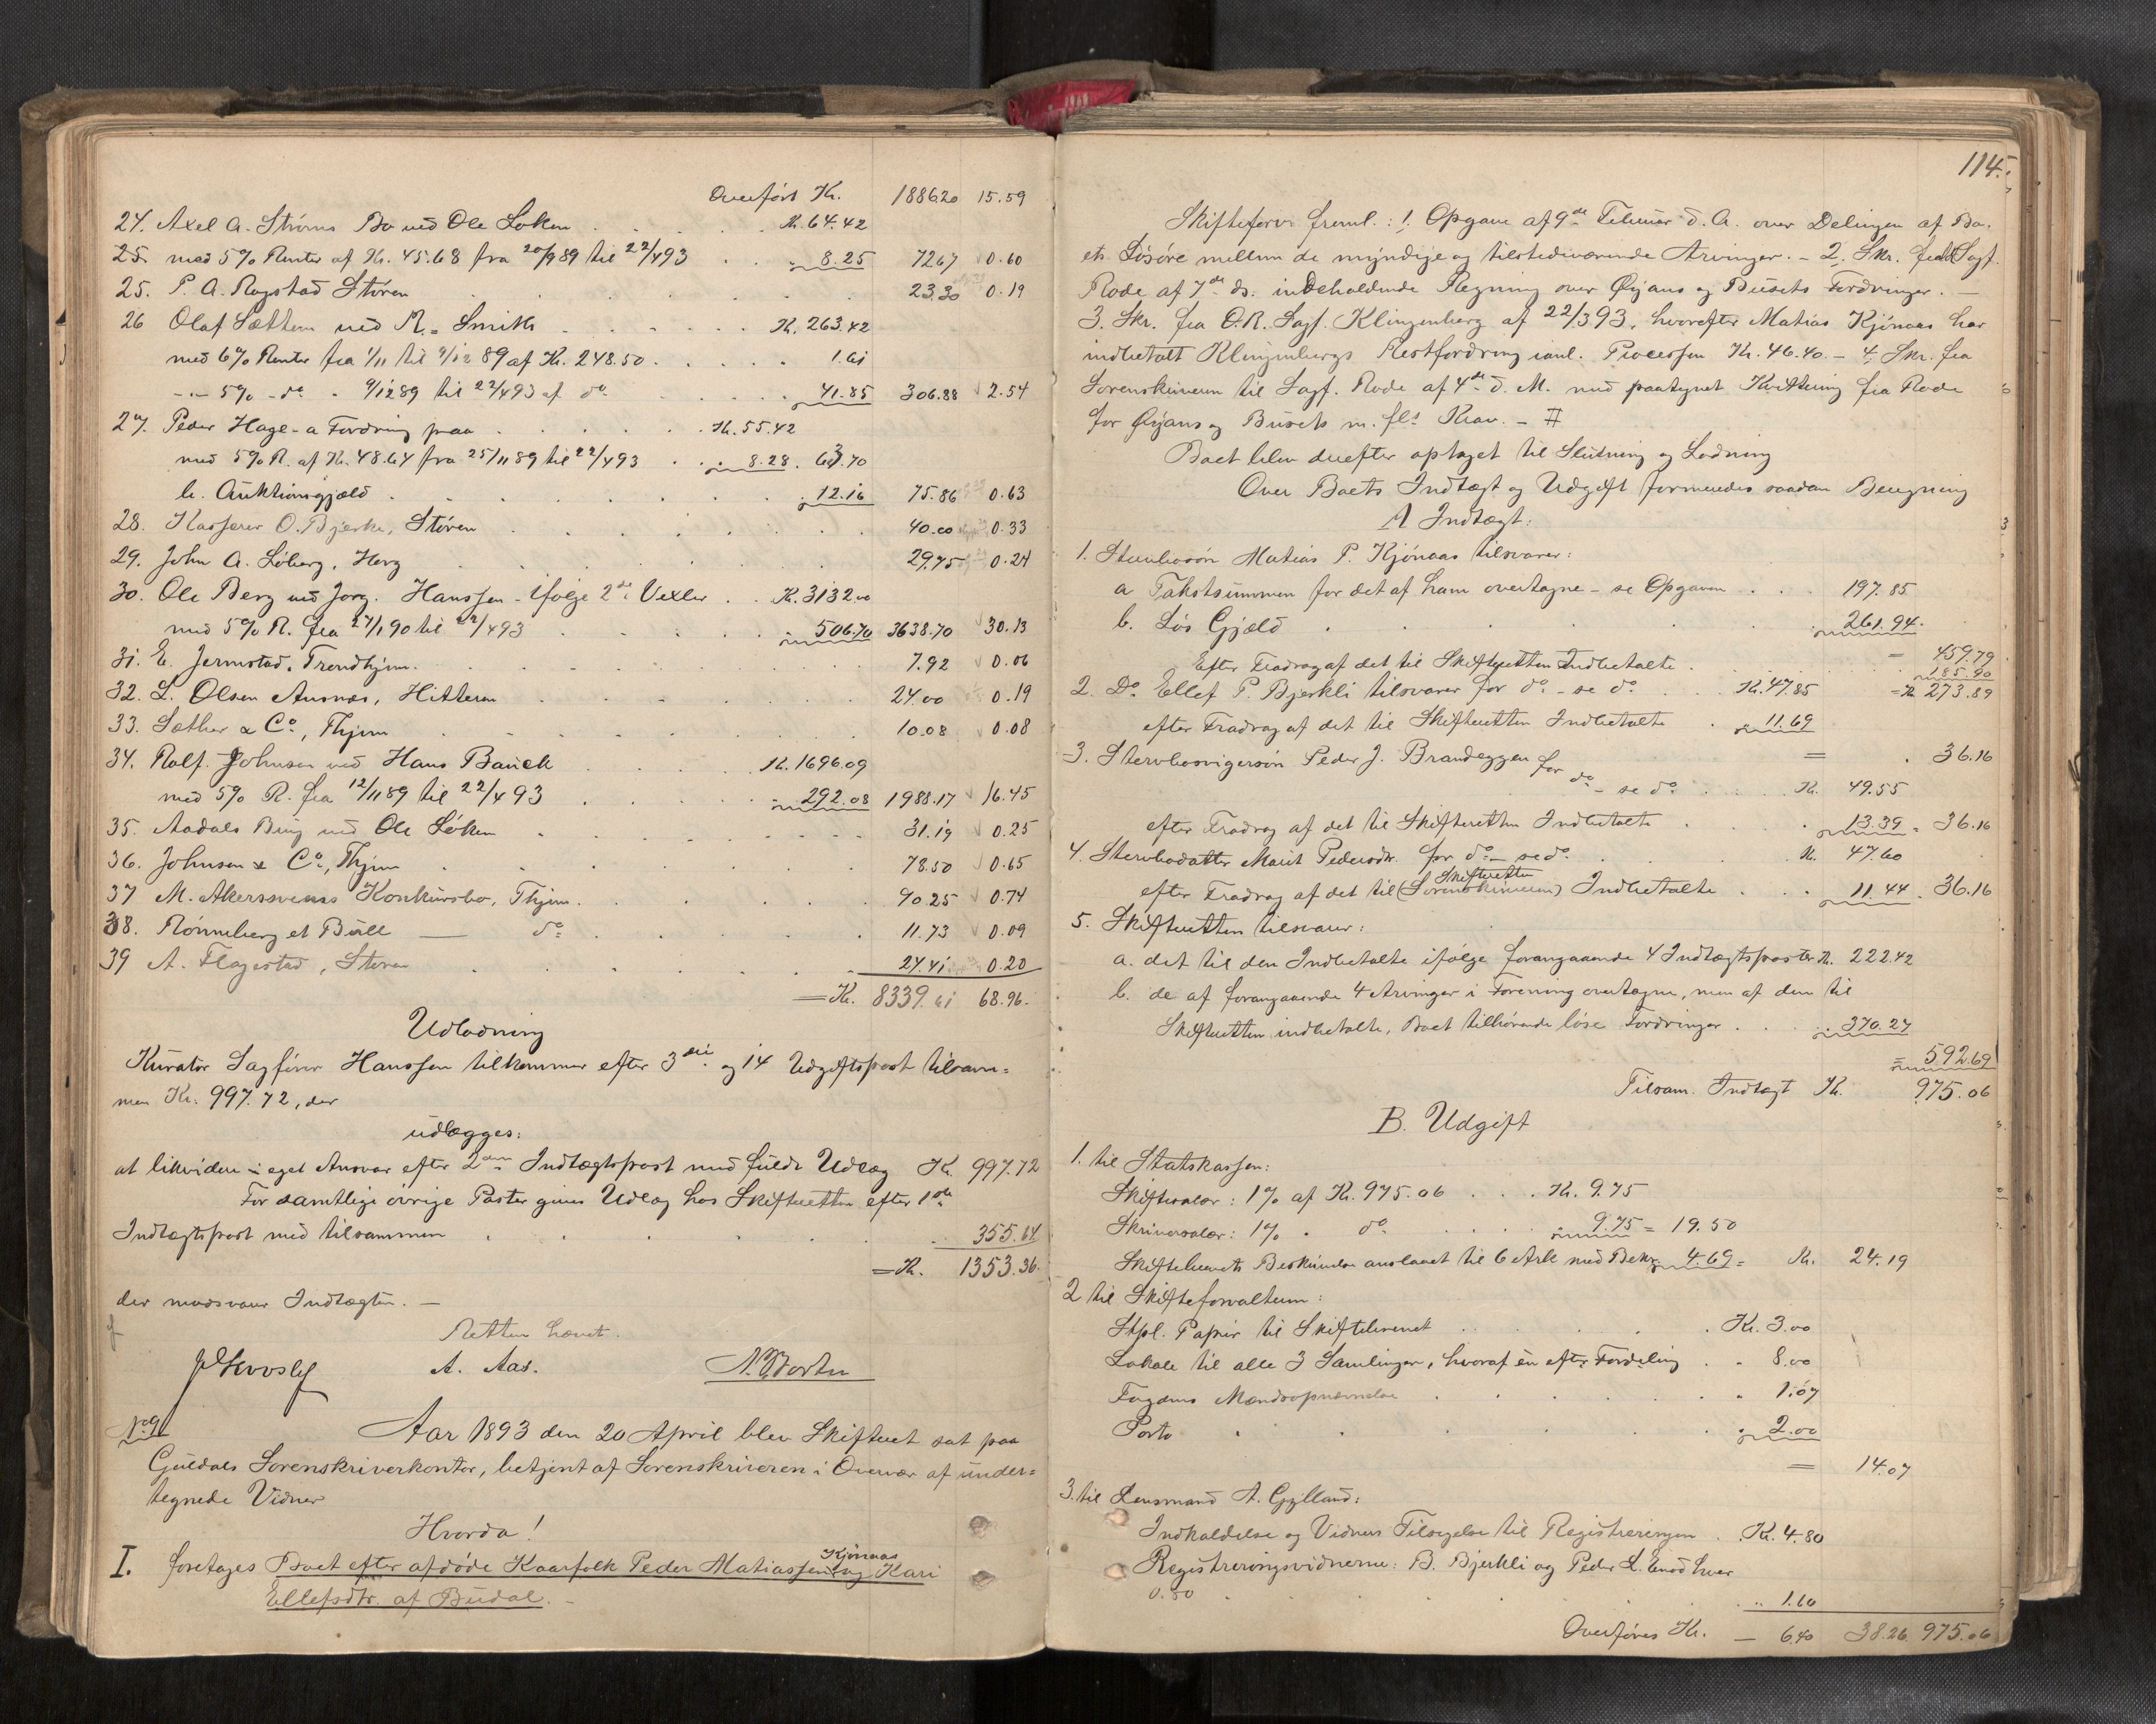 Overført Kr. 1886.20 15.59
24. Axel A. Strøms Bo ved Ole Løken . . . Kr. 64.42
25. med 5% Renter af Kr. 45.68 fra 20/9 89 til 22/4 93 . . " 8.25 72.67 0.60
25. P. A. Rogstad Støren . . . 23.30 0.19
26 Olaf Sættem ved R. Smith . . . Kr. 263.42
med 6% Renter fra 1/11 til 9/12 89 af Kr. 248.50 . . . 1.61
-"- 5% - do - 9/12 89 til 22/4 93 af do . . . 41.85 306.88 2.54
27. Peder Hage - a Fordring paa . . . Kr. 55.42
med 5% R. af Kr. 48.64 fra 25/11 89 til 22/4 93 . " 8.28 . 63.70
b. Auktionsgjæld . . . 12.16 75.86 0.63
28. Kasserer O. Bjerke, Støren . . . 40.00 0.33
29. John A. Løberg, Horg . . . 29.75 0.24
30. Ole Berg ved Jørg. Hanssen - ifølge 2de Vexler . . Kr. 3132.00
med 5% R. fra 27/1 90 til 22/4 93 . . . 506.70 3638.70 30.13
31. E. Jermstad, Trondhjem. . . . 7.92 0.06
32. L. Olsen Ausnæs, Hitteren . . . 24.00 0.19
33. Sæther & Co., Thjem . . . 10.08 0.08
34. Rolf Johnsen ved Hans Bauck . . . Kr. 1696.09
med 5% R. fra 12/11 89 til 22/4 93 . . . 292.08 1988.17 16.45
35. Aadals Brug ved Ole Løken . . . 31.19 0.25
36. Johnsen & Co., Thjem . . . 78.50 0.65
37 M. Akersveens Konkursbo, Thjem. . . . 90.25 0.74
38. Rønneberg et Büll — do . . . 11.73 0.09
39 A. Flagestad, Støren . . . 24.41 0.20
= Kr. 8339.61 68.96.
Udlodning
Kurator Sagfører Hanssen tilkommer efter 3die og 14 Udgiftspost tilsam=
men Kr. 997.72, der
udlægges:
at likvidere i eget Ansvar efter 2den Indtægtspost med fuldt Udlæg Kr. 997.72
For samtlige øvrige Poster gives Udlæg hos Skifteretten efter 1ste
Indtægtspost med tilsammen . . . 355.64
= Kr. 1353.36.
der modsvarer Indtægten. —
Retten hævet.
A. Aas.
No 9
Aar 1893 den 20 April blev Skifteret sat paa
Guldals Sorenskriverkontor, betjent af Sorenskriveren i Overvær af under=
tegnede Vidner
Hvorda!
I. foretages Boet efter afdøde Kaarfolk Peder Matiassen Kjønaas og Kari
Ellefsdtr. af Budal. —
114.
Skifteforv. freml.: 1. Opgave af 9de Februar d. A. over Delingen af Bo.
ets Løsøre mellem de myndige og tilstedeværende Arvinger. – 2. Skr. fra Sagf.
Rode af 7de ds. indeholdende Regning over Øyans og Busets Fordringer. —
3. Skr. fra O. R. Sagf. Klingenberg af 22/3 93, hvorefter Matias Kjønaas har
indbetalt Klingenbergs Restfordring ianl. Processen Kr. 46.40. – 4. Skr. fra
Sorenskriveren til Sagf. Rode af 4de d. M. med paategnet Kvittering fra Rode
for Øyans og Busets m. fl.s Krav. – #
Boet blev derefter optaget til Slutning og Lodning
Over Boets Indtægt og Udgift formeredes saadan Beregning
A Indtægt:
1. Stervbosøn Matias P. Kjønaas tilsvarer:
a Takstsummen for det af ham overtagne – se Opgaven . . 197.85
b. Løs Gjæld . . . 261.94.
= 459.79
Efter Fradrag af det til Skifteretten Indbetalte . . . 185.90
2. Do Ellef P. Bjerkli tilsvarer for do – se do . . Kr. 47.85 = Kr 273.89
efter Fradrag af det til Skifteretten Indbetalte . " 11.69
= . 36.16
3. Stervbosvigersøn Peder J. Brandeggen for do – se do . . . Kr. 49.55
efter Fradrag af det til Skifteretten Indbetalte . . . 13.39 = 36.16
4. Stervbodatter Marit Pedersdtr. for do – se do . . . Kr. 47.60
efter Fradrag af det til (Sorenskriveren) Skifteretten Indbetalte . . . 11.44 . 36.16
5. Skifteretten tilsvarer:
a. det til den Indbetalte ifølge forangaaende 4 Indtægtsposter Kr. 222.42
b. de af forangaaende 4 Arvinger i Forening overtagne, men af dem til
Skifteretten indbetalte, Boet tilhørende løse Fordringer . . . 370.27
= 592.69
Tilsam. Indtægt Kr. 975.06
B. Udgift
1. til Statskassen:
Skiftesalær: 1% af Kr. 975.06 . . . Kr. 9.75
Skriversalær: 1% " do . . . 9.75 = 19.50
Skiftebrevets Beskrivelse anslaaet til 6 Ark med Bekr. 4.69 = Kr. 24.19
2 til Skifteforvalteren:
Stpl. Papir til Skiftebrevet . . . Kr. 3.00
Lokale til alle 3 Samlinger, hvoraf én efter Fordeling . . 8.00
Fogdens Mændsopnævnelse . . . 1.07
Porto . . . 2.00
= 14.07
3. til Lensmand A. Gylland:
Indkaldelse og Vidners Tilsigelse til Registreringen . Kr. 4.80
Registreringsvidnerne: B. Bjerkli og Peder L. Enod hver
0.80 . . . 1.60
Overføres Kr. — 6.40 38.26 975.06